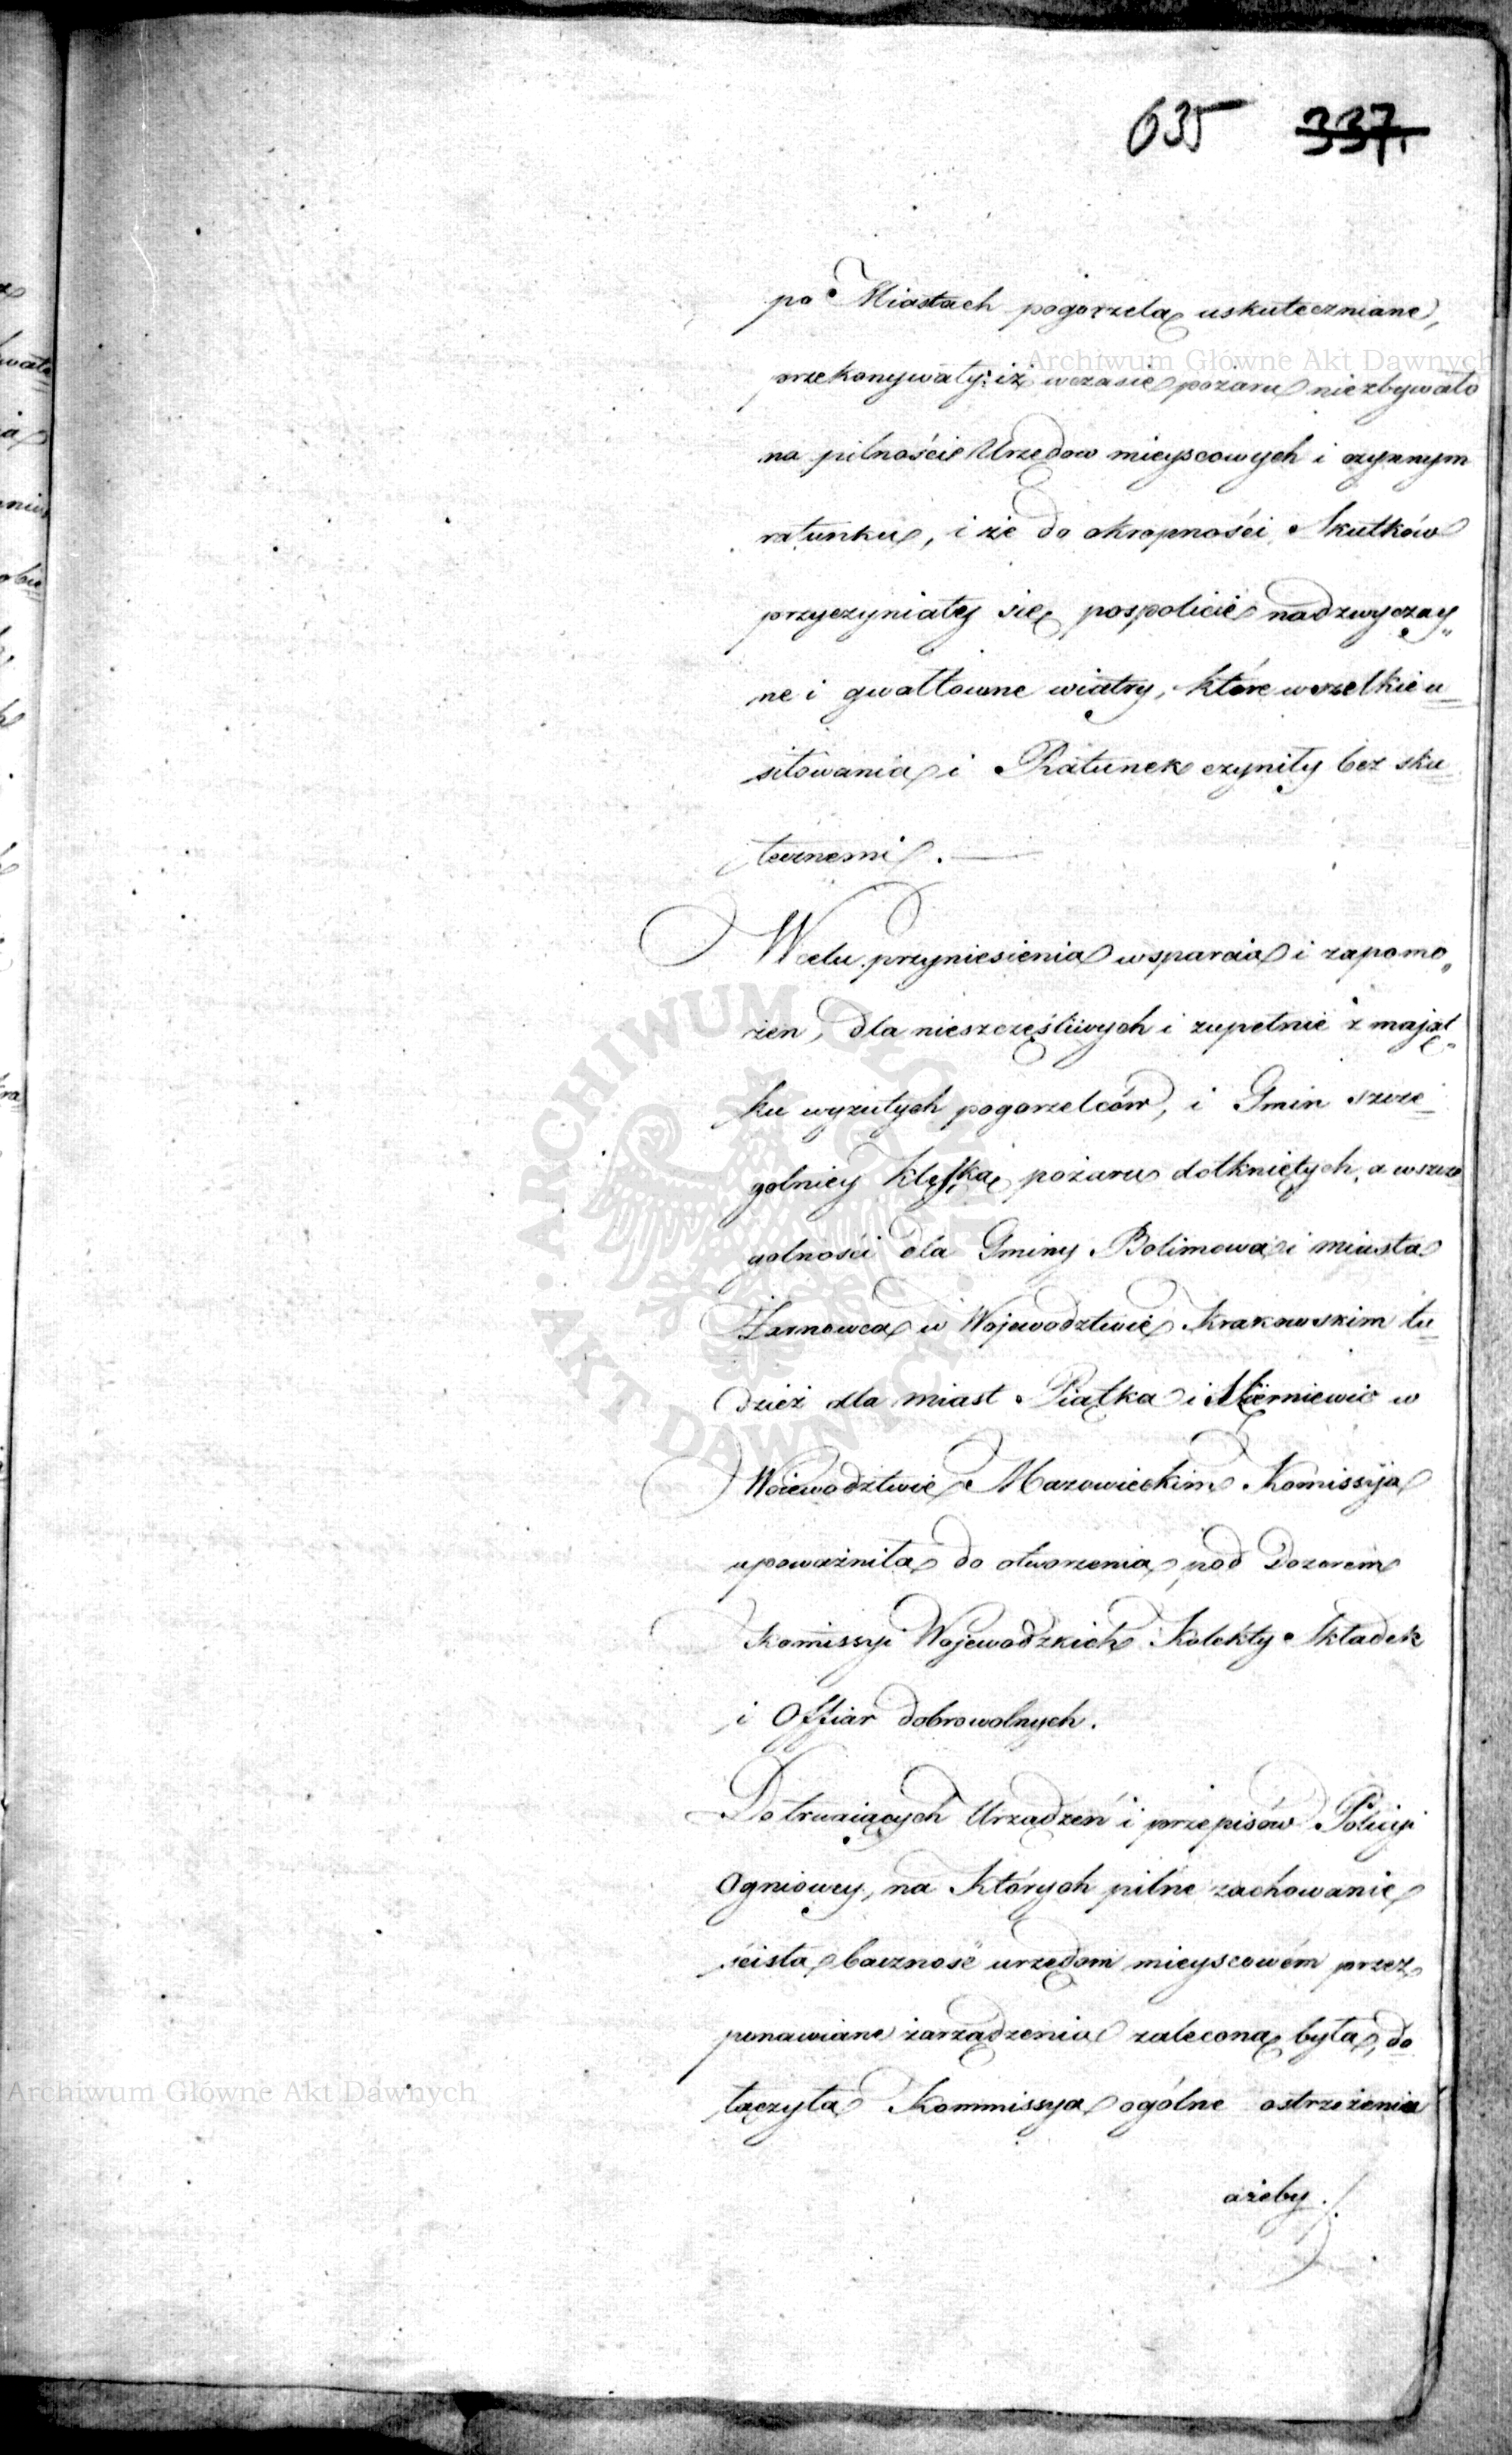 635 337.
po Miastach pogorzelą uskutecznione,
przekonywały: iż wczasie pożaru niezbywało
na pilności Urzędow mieyscowych i czynnym
ratunku, i że do okropności Skutków
przyczyniały się pospolicie nadzwyczay„
ne i gwałtowne wiatry, które wszelkie u_
siłowania i Ratunek czyniły bez sku_
tecznemi. —
W celu przyniesienia wsparcia i zapomo„
żen, dla nieszczęśliwych i zupełnie z mająt„
ku wyzutych pogorzelców, i Gmin szcze_
golniey klęską pożaru dotkniętych, a wszcze
golności dla Gminy Bolimowa i miasta
Żarnowca w Wojewodztwie Krakowskim tu_
dzież dla miast Piątka i Skierniewic w
Woiewodztwie Mazowieckim Komissyja
upoważniła do otworzenia pod Dozorem
Komissyi Wojewodzkich Kolekty Składek
i Offiar dobrowolnych.
Do trwaiących Urządzeń i przepisów Policyi
Ogniowey, na których pilne zachowanie
ścisła baczność urzędom mieyscowém przez
ponawiane zarządzenia zaleconą była, do_
łączyła Kommissya ogólne ostrzeżenia
ażeby ./.
Archiwum Główne Akt Dawnych
ARCHIWUM GŁÓWNE · AKT DAWNYCH ·
Archiwum Główne Akt Dawnych